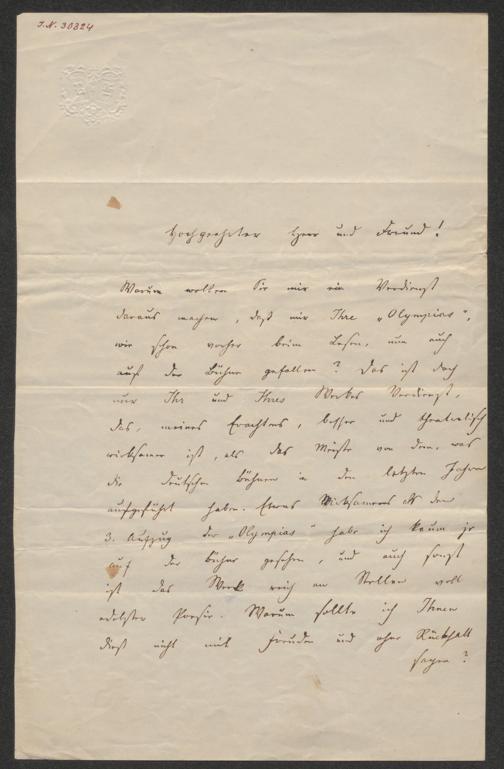 I.N. 30324
Hochgeehrter Herr und Freund!
Warum wollen Sie mir ein Verdienst
daraus machen, daß mir Ihre „Olympias“,
wie schon vorher beim Lesen, nun auch
auf der Bühne gefallen? Das ist doch
nur Ihr und Ihres Werkes Verdienst,
das, meines Erachtens, besser und theatralisch
wirksamer ist, als das Meiste von dem, was
die deutschen Bühnen in den letzten Jahren
aufgeführt haben. Etwas Wirksameres als den
3. Aufzug der „Olympias“ habe ich kaum je
auf der Bühne gesehen, und auch sonst
ist das Werk reich an Stellen voll
edelster Poesie. Warum sollte ich Ihnen
dieß nicht mit Freuden und ohne Rückhalt
sagen?